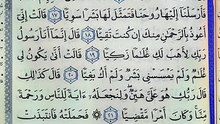 فَأَرْسَلْنَا إِلَيْهَا رُوحَنَا فَتَمَثَّلَ لَهَا بَشَرًا سَوِيًّا ١٧ قَالَتْ إِنِّي
أَعُوذُ بِالرَّحْمَٰنِ مِنكَ إِن كُنتَ تَقِيًّا ١٨ قَالَ إِنَّمَا أَنَا رَسُولُ
رَبِّكِ لِأَهَبَ لَكِ غُلَامًا زَكِيًّا ١٩ قَالَتْ أَنَّىٰ يَكُونُ لِي
غُلَامٌ وَلَمْ يَمْسَسْنِي بَشَرٌ وَلَمْ أَكُ بَغِيًّا ٢٠ قَالَ كَذَٰلِكِ
قَالَ رَبُّكِ هُوَ عَلَيَّ هَيِّنٌ وَلِنَجْعَلَهُ آيَةً لِّلنَّاسِ وَرَحْمَةً
مِّنَّا وَكَانَ أَمْرًا مَّقْضِيًّا ٢١ فَحَمَلَتْهُ فَانتَبَذَتْ